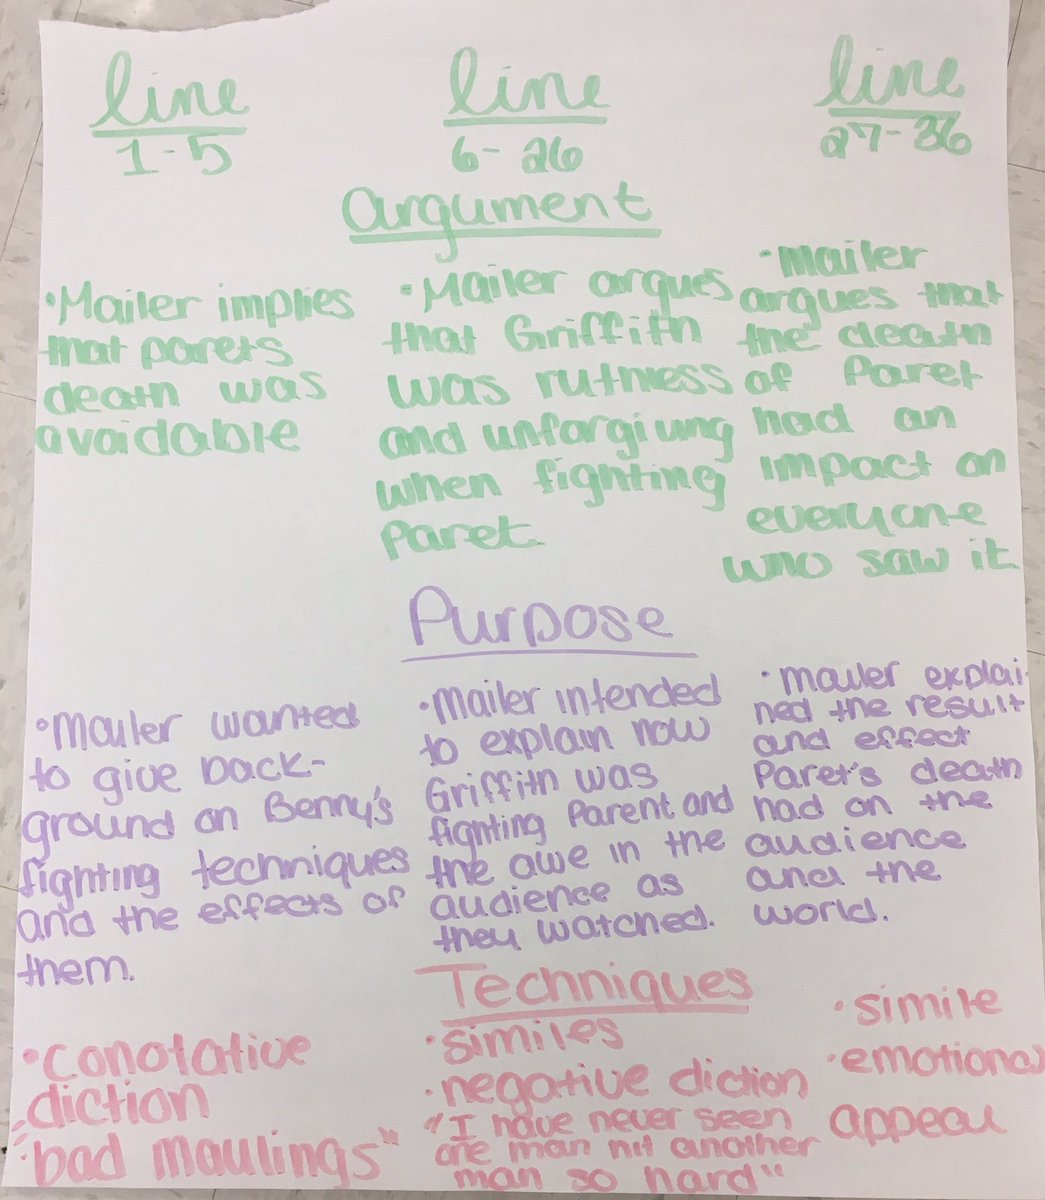 line
1-5
line
6-26
line
27-36
argument
•Mailer implies
that parets
death was
avoidable
•Mailer argues
that Griffith
was ruthless
and unforgiving
when fighting
Paret.
•mailer
argues that
the death
of Paret
had an
impact on
everyone
who saw it
Purpose
•Mailer wanted
to give back-
ground on Benny's
fighting techniques
and the effects of
them.
•Mailer intended
to explain how
Griffith was
fighting Parent and
the awe in the
audience as
they watched.
•mailer explai-
ned the result
and effect
Paret's death
had on the
audience
and the
world.
Techniques
•conotative
diction
"bad maulings"
•similes
•negative diction
"I have never seen
one man hit another
man so hard"
•simile
•emotional
appeal